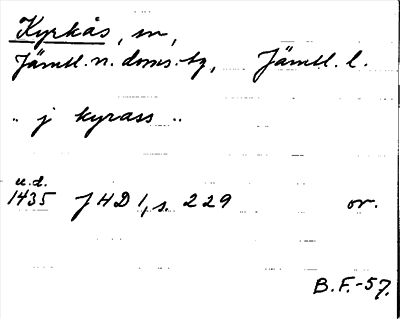 Kyrkås, sn,
Jämtl. n. doms. tg, Jämtl. l.
" j kyrass "
u.d.
1435 JHD 1, s. 229 or.
B.F.-57.